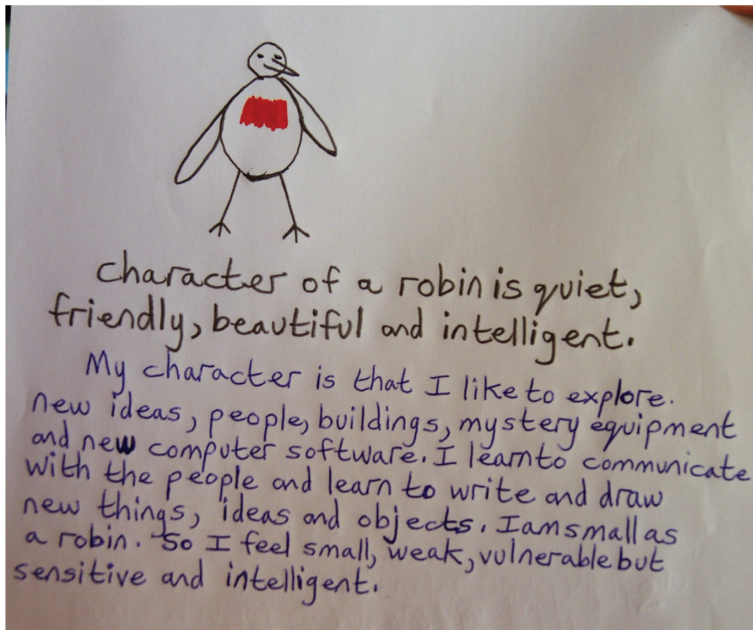 character of a robin is quiet,
friendly, beautiful and intelligent.
My character is that I like to explore.
new ideas, people, buildings, mystery equipment
and new computer software. I learn to communicate
with the people and learn to write and draw
new things, ideas and objects. I am small as
a robin. So I feel small, weak, vulnerable but
sensitive and intelligent.